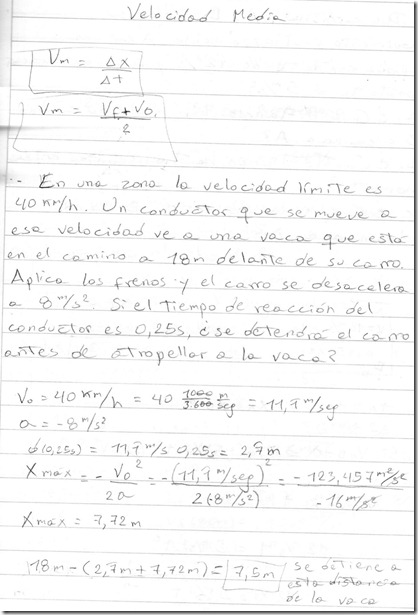 Velocidad Media
Vm = Δx / Δt
Vm = Vf + Vo / 2
-- En una zona la velocidad límite es
40 Km/h. Un conductor que se mueve a
esa velocidad ve a una vaca que está
en el camino a 18m delante de su carro.
Aplica los frenos y el carro se desacelera
a 8 m/s². Si el tiempo de reacción del
conductor es 0,25s, ¿se detendrá el carro
antes de atropellar a la vaca?
Vo = 40 Km/h = 40 1000 m / 3.600 seg = 11,1 m/seg
a = -8 m/s²
(0,25s) = 11,1 m/s 0,25s = 2,7m
Xmax = - Vo² / 2a = - (11,1 m/seg)² / 2(-8 m/s²) = - 123,457 m²/s² / -16 m/s²
Xmax = 7,72m
18m - (2,7m + 7,72m) = 7,5m se detiene a
esta distancia
de la vaca